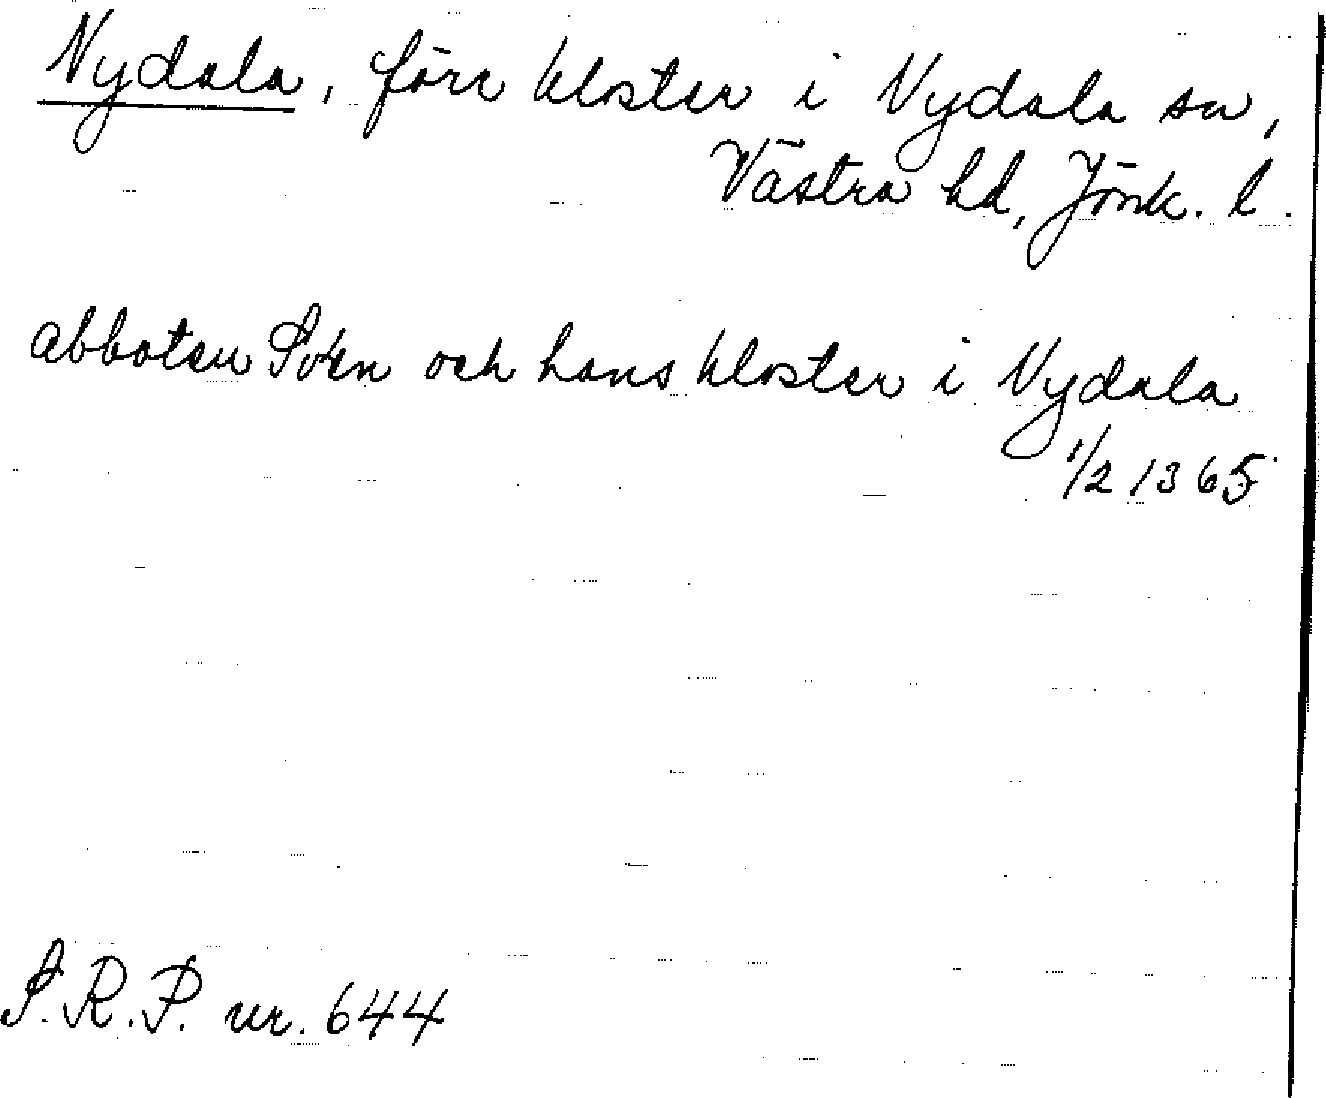 Nydala, förr kloster i Nydala sn,
Västra hd, Jönk. l.
abboten Sven och hans kloster i Nydala
1/2 1365
S.R.P. nr. 644